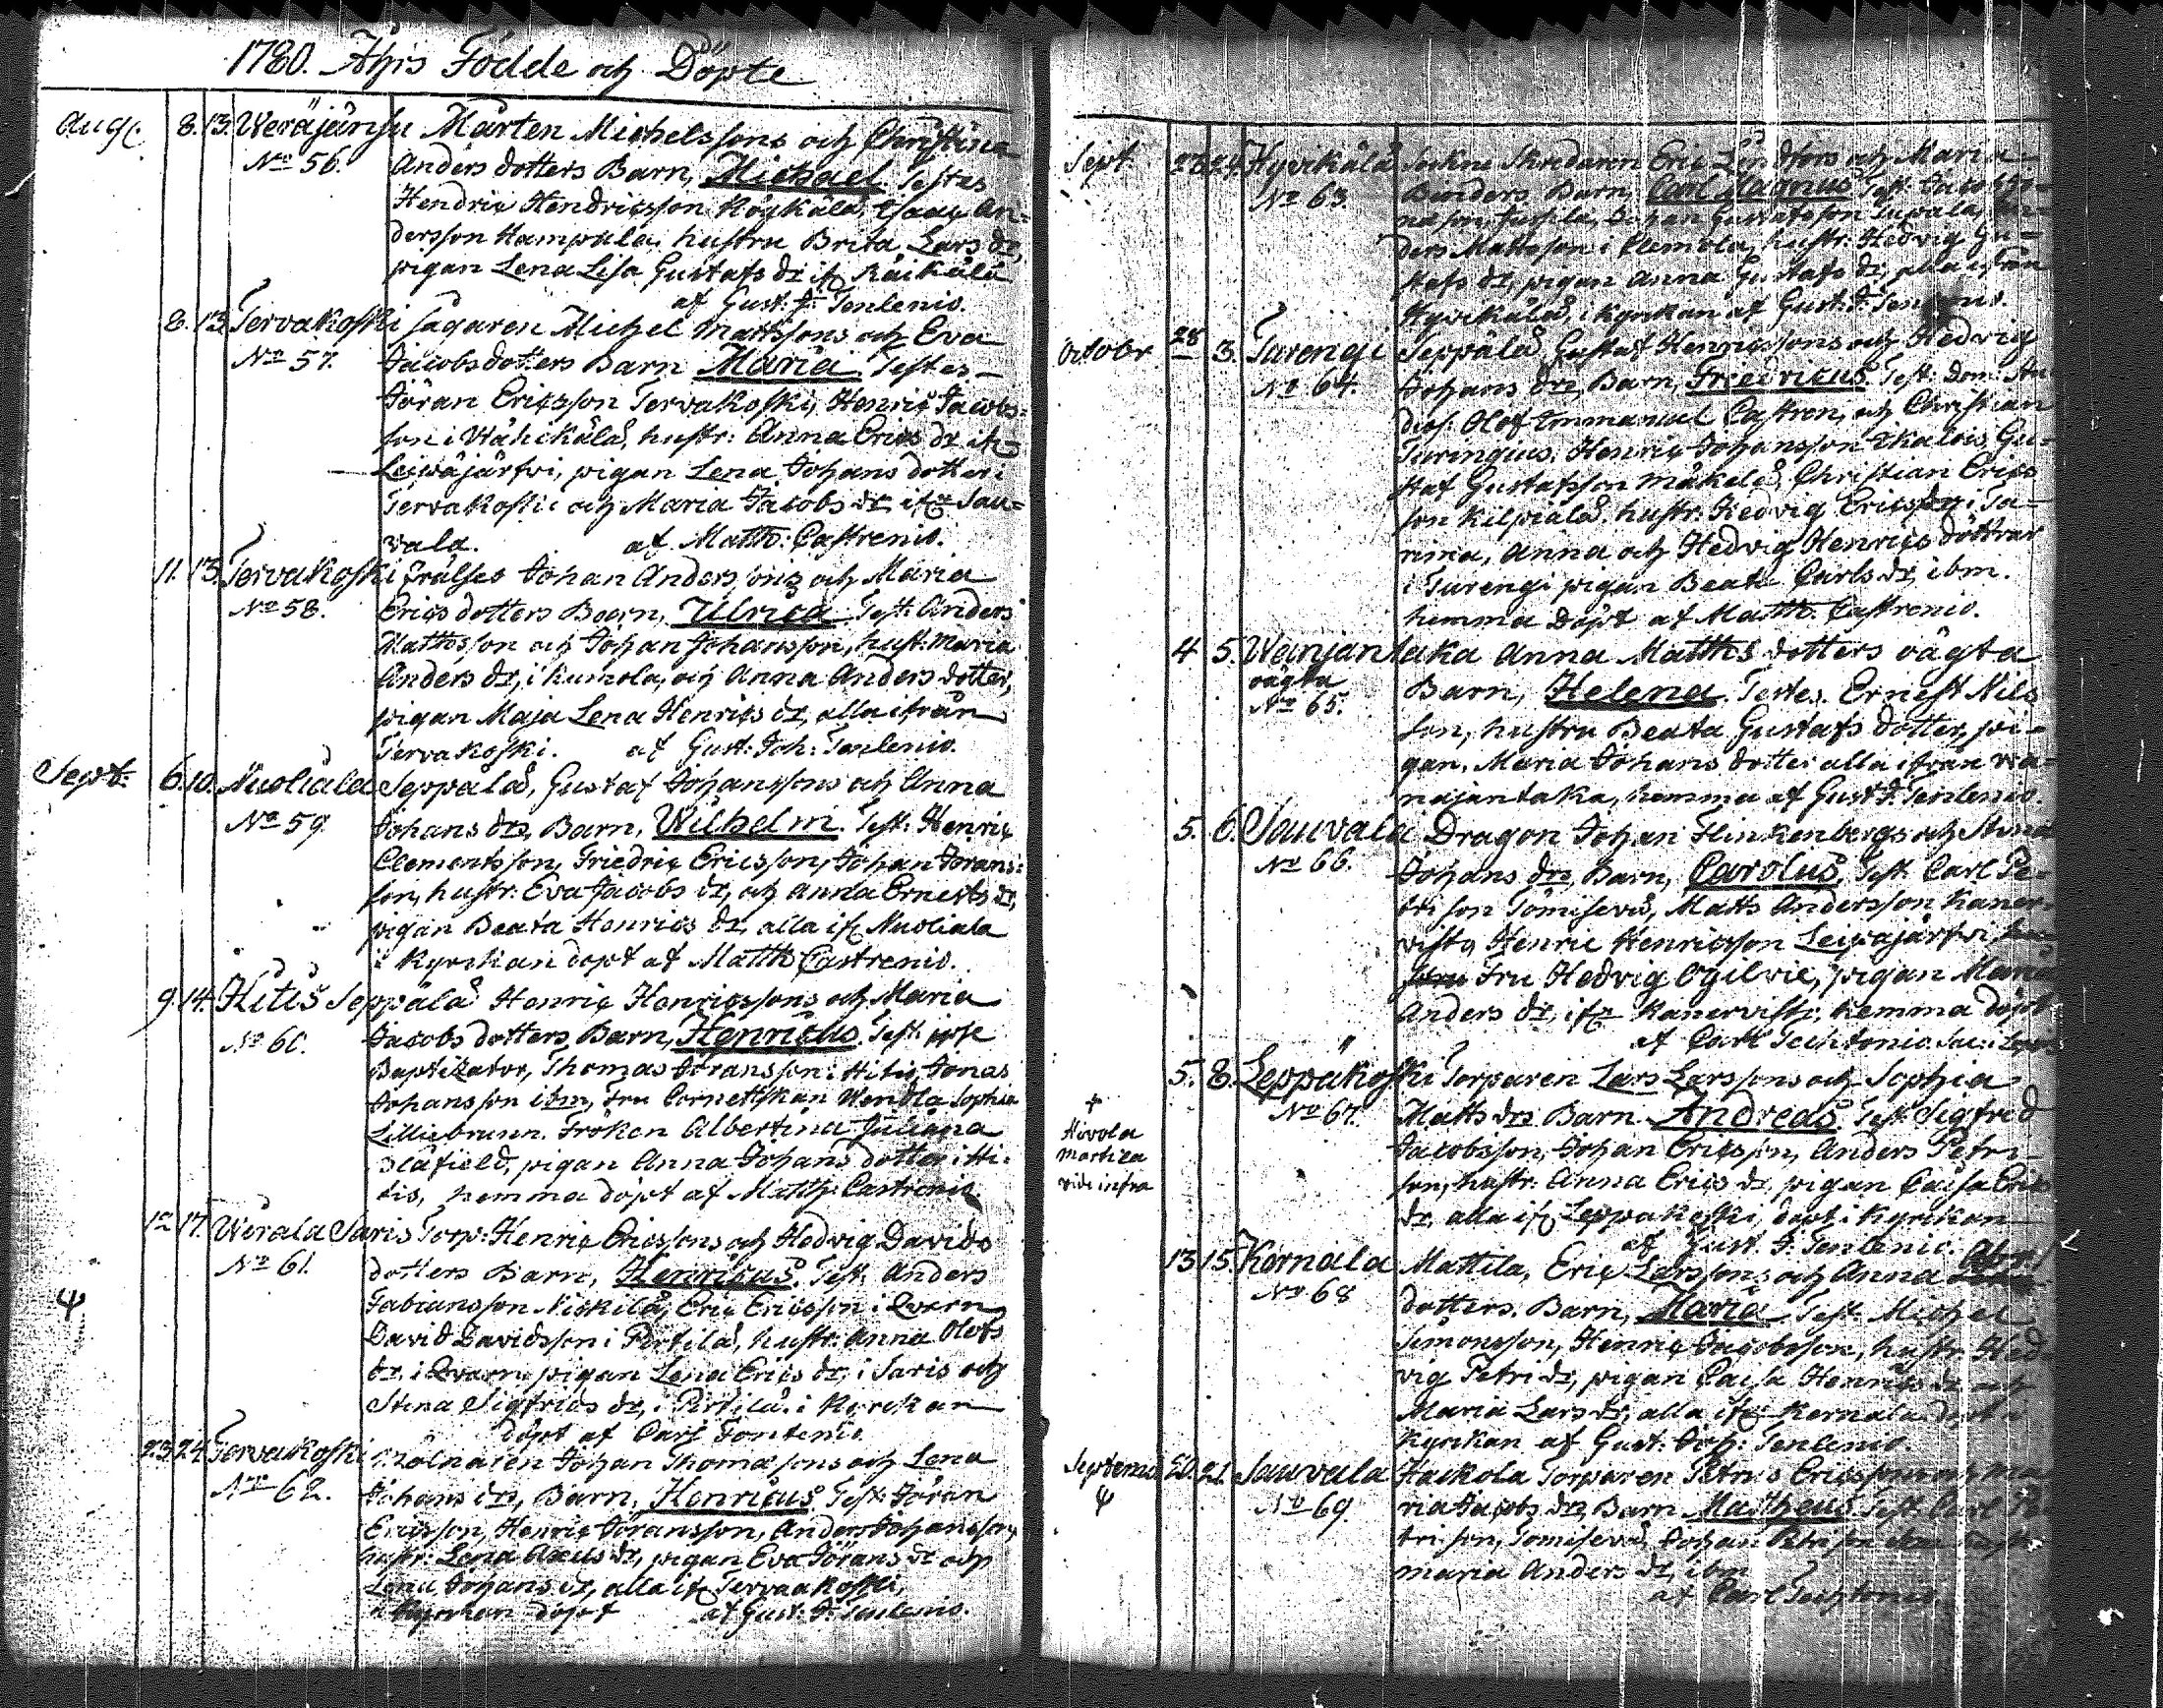 1780. Åhrs Födde och Döpte
Aug. 8. 13. Weräjänsu Mårten Michelssons och Christina
No 56. Anders dotters Barn, Michael. Testes
Hendric Hendricsson Råykälä, Isaac An=
dersson Hampula, hustru Brita Lars dr,
pigan Lena Lisa Gustafs dr ifr Räikälä
af Gust: J: Tenlenio.
8. 13. Tervakoski sågaren Michel Mattssons och Eva
No 57. Jacobsdotters Barn Maria. Testes
Jöran Ericsson Tervakoski, Henric Jacobs=
son i Wähikälä, hustr: Anna Erics dr ifr
Leiwäjärfvi, pigan Lena Johans dotter i
Tervakoski och Maria Jacobs dr ifr Sau=
vala. af Matth: Castrenio.
11. 13. Tervakoski frälses Johan Anderssons och Maria
No 58. Erics dotters Barn, Ulrica. Test: Anders
Mattsson och Johan Johansson, hust: Maria
Anders dr, i Kumola, och Anna Anders dotter,
pigan Maja Lena Henrics dr, alla ifrån
Tervakoski. af Gust: Joh: Tenlenio.
Sept. 6. 10. Nuoliala Seppälä, Gustaf Johanssons och Anna
No 59. Johans drs, Barn, Wilhelm. Test: Henric
Clementsson, Friedric Ericsson, Johan Jörans=
son, hustr: Eva Jacobs dr, och Anna Ernests dr,
pigan Beata Henrics dr alla ifr Nuoliala
i Kyrckan döpt af Matth Castrenio.
9. 14. Hitis Seppälä Henric Henricssons och Maria
No 60. Jacobs dotters Barn, Henricus. Test: ipse
Baptizator, Thomas Göransson i Hitis, Jonas
Johansson ibm, Fru Cornettskan Wendla Sophia
Lilliebrunn. Fröken Albertina Juliana
Blåfield, pigan Anna Johans dotter i Hi-
tis, hemma döpt af Matth: Castrenio.
12 17. Wirala Saris Torp: Henric Ericssons och Hedvig Davids
No 61. dotters Barn, Henricus. Test: Anders
Fabiansson Niskilä, Eric Ericsson i Qvarn
David Davidsson i Pertilä, hustr: Anna Olofs
ψ
dr. i Qvarn pigan Lena Erics dr, i Saris och
Stina Sigfrids dr, i Pertilä. i Kyrckan
döpt af Carl
23. 24. Tervakoski Mölnaren Johan Thomæsons och Lena
No 62. Johans drs, Barn, Henricus. Test: Jöran
Ericsson, Henric Göransson, Anders Johansson,
hustr: Lena Axels dr, pigan Eva Jörans dr och
Lena Johans dr, alla ifr Tervakoski,
i Kyrckan döpt af Gust: J: Tenlenio.
Sept. 23 24. Hyvikälä Sockne Skredaren Eric Lindfors och Maria
No 63. Barn, Carl Magnus. Test: Jacob Jo-
Johan Gustafsson
ders Mattsson i Clemola, hustr: Hedvig Gu=
stafs dr, pigan Anna Gustafs dr, alla ifrån
Hyvikälä, i Kyrckan af Gust: J: Tenlenio.
October 28 3. Turengi Seppälä Gustaf Henricssons och Hedvig
No 64. Johans drs, Barn, Friedricus. Test: Dom: Stu
dios: Olof Emmanuel Castren, och Christian
Turingius. Henric Johansson Ikalois, Gu=
staf Gustafsson Mäkelä, Christian Erics
son Kilpiälä. hustr: Hedvig Ericsdr i Ta-
rima, Anna och Hedvig Henrics döttrar
i Turengi pigan Beata Carls dr, ibm.
hemma Döpt af Matth. Castrenio.
4 5. Wänjäntaka Anna Matths dotters oägta
oägta
No 65. Barn, Helena. Testes. Ernest Nils
son, hustru Beata Gustafs dotter, pi-
gan. Maria Johans dotter alla ifrån Wä-
näjäntaka, hemma af Gust J. Tenlenio.
5. 6. Sauvala Dragon Johan Flinkenbergs och Stina
No 66. Johans drs, Barn, Carolus. Test: Carl Pe-
tri son Tömisevä, Matts Andersson Kaner-
visto, Henric Henricsson Leiwäjärfvi
Fru Hedvig Ogilvie, pigan Maria
Anders dr, ifr Kanervisto, hemma döpt
af Carl
5. 8. Leppäkoski Torparen Lars Larssons och Sophia
No 67. Matts drs Barn Andreas. Test: Sigfrid
+
Hivola
Martila
vide infra
Jacobsson, Johan Ericsson, Anders Petri-
son, hustr: Anna Erics dr, pigan Caisa Erics
dr, alla ifr Leppäkoski, döpt i Kyrckan
af Gust. J. Tenlenio.
13. 15. Kernala Mattila, Eric Larssons och Anna
No 68 dotters. Barn, Maria. Test: Michel
Simonsson, Henric Jacobsson, hustr: Hed-
vig Petri dr, pigan Caisa Henrics dr och
Maria Lars dr, alla ifr Kernala döpt i
Kyrckan af Gust: Joh: Tenlenio.
Septemb 20. 21. Sauvala Hackola Torparen Petrus Ericssons och Ma
ψ
No 69. ria Jacobs drs Barn Mattheus. Test: Carl Pe-
tri son, Tömisevä, Johan Petri son
Maria Anders dr, ibm
af Carl